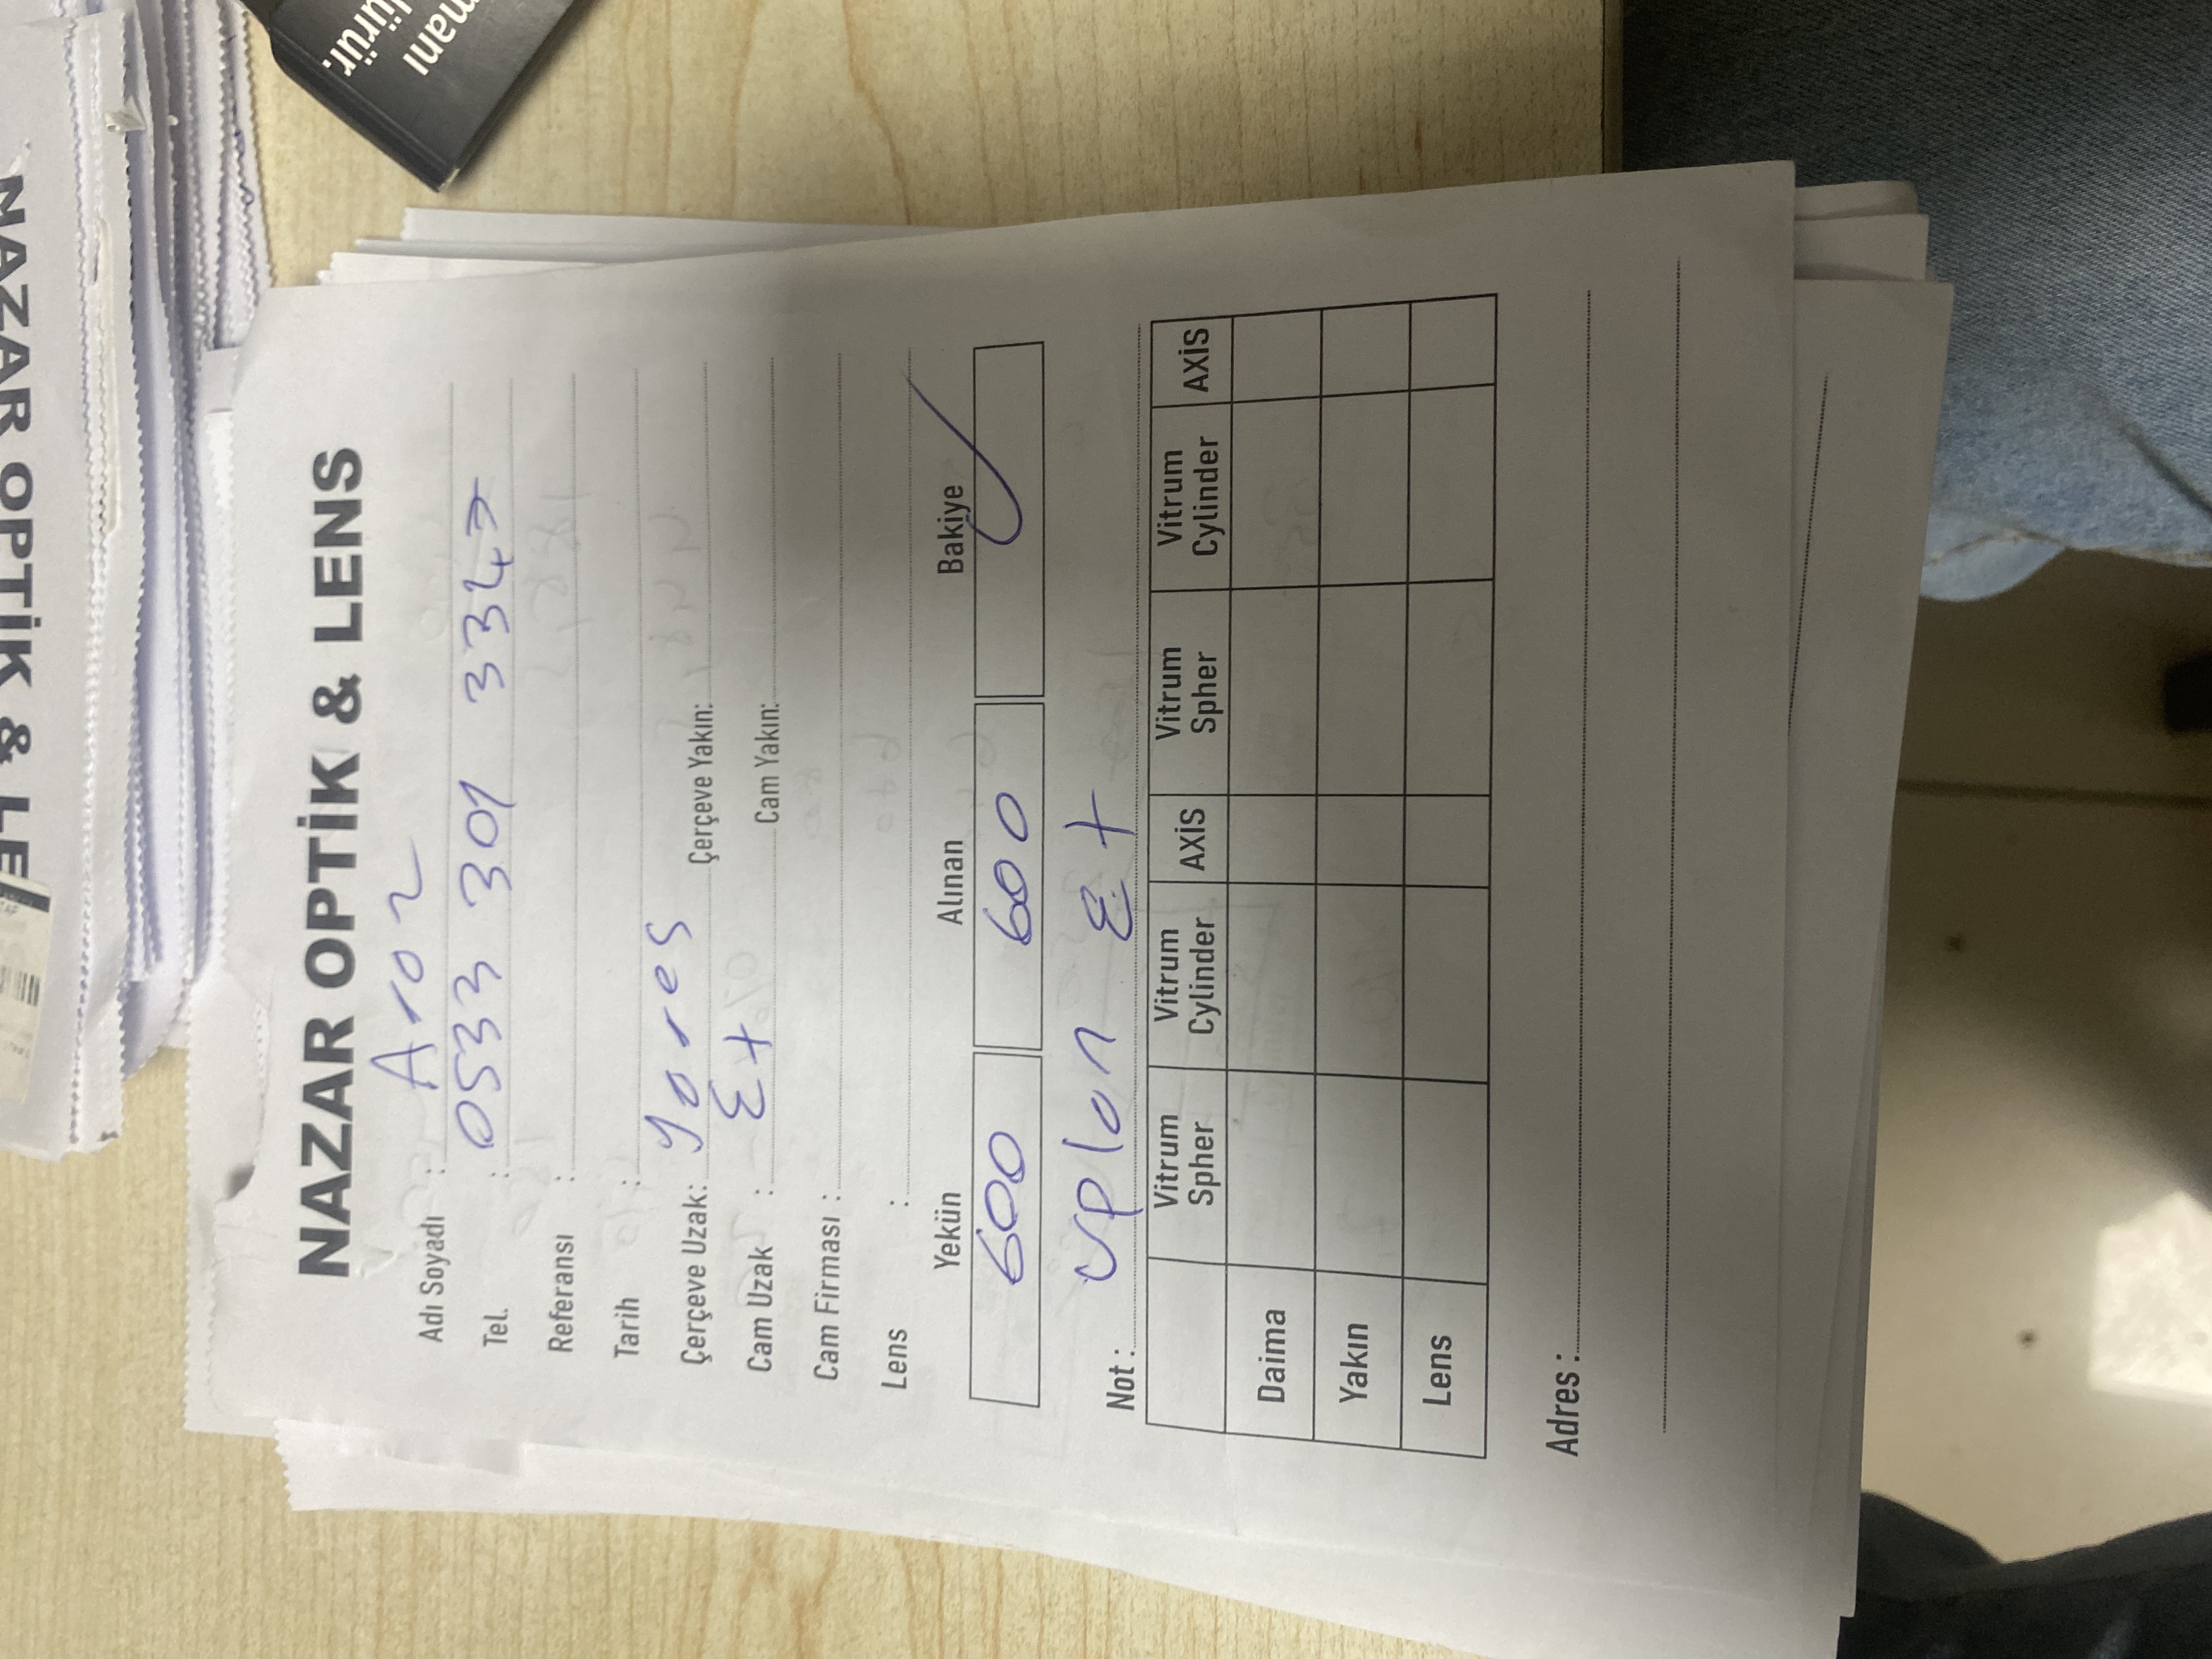 NAZAR OPTİK & LE
NAZAR OPTİK & LENS
Adı Soyadı : Araz
Tel. : 0533 301 3347
Referansı :
Tarih :
Çerçeve Uzak: yores Çerçeve Yakın:
Cam Uzak : Et Cam Yakın:
Cam Firması :
Lens :
Yekün Alınan Bakiye
600 600
Not : Uplan Et
Vitrum Spher Vitrum Cylinder AXİS Vitrum Spher Vitrum Cylinder AXİS
Daima
Yakın
Lens
Adres :